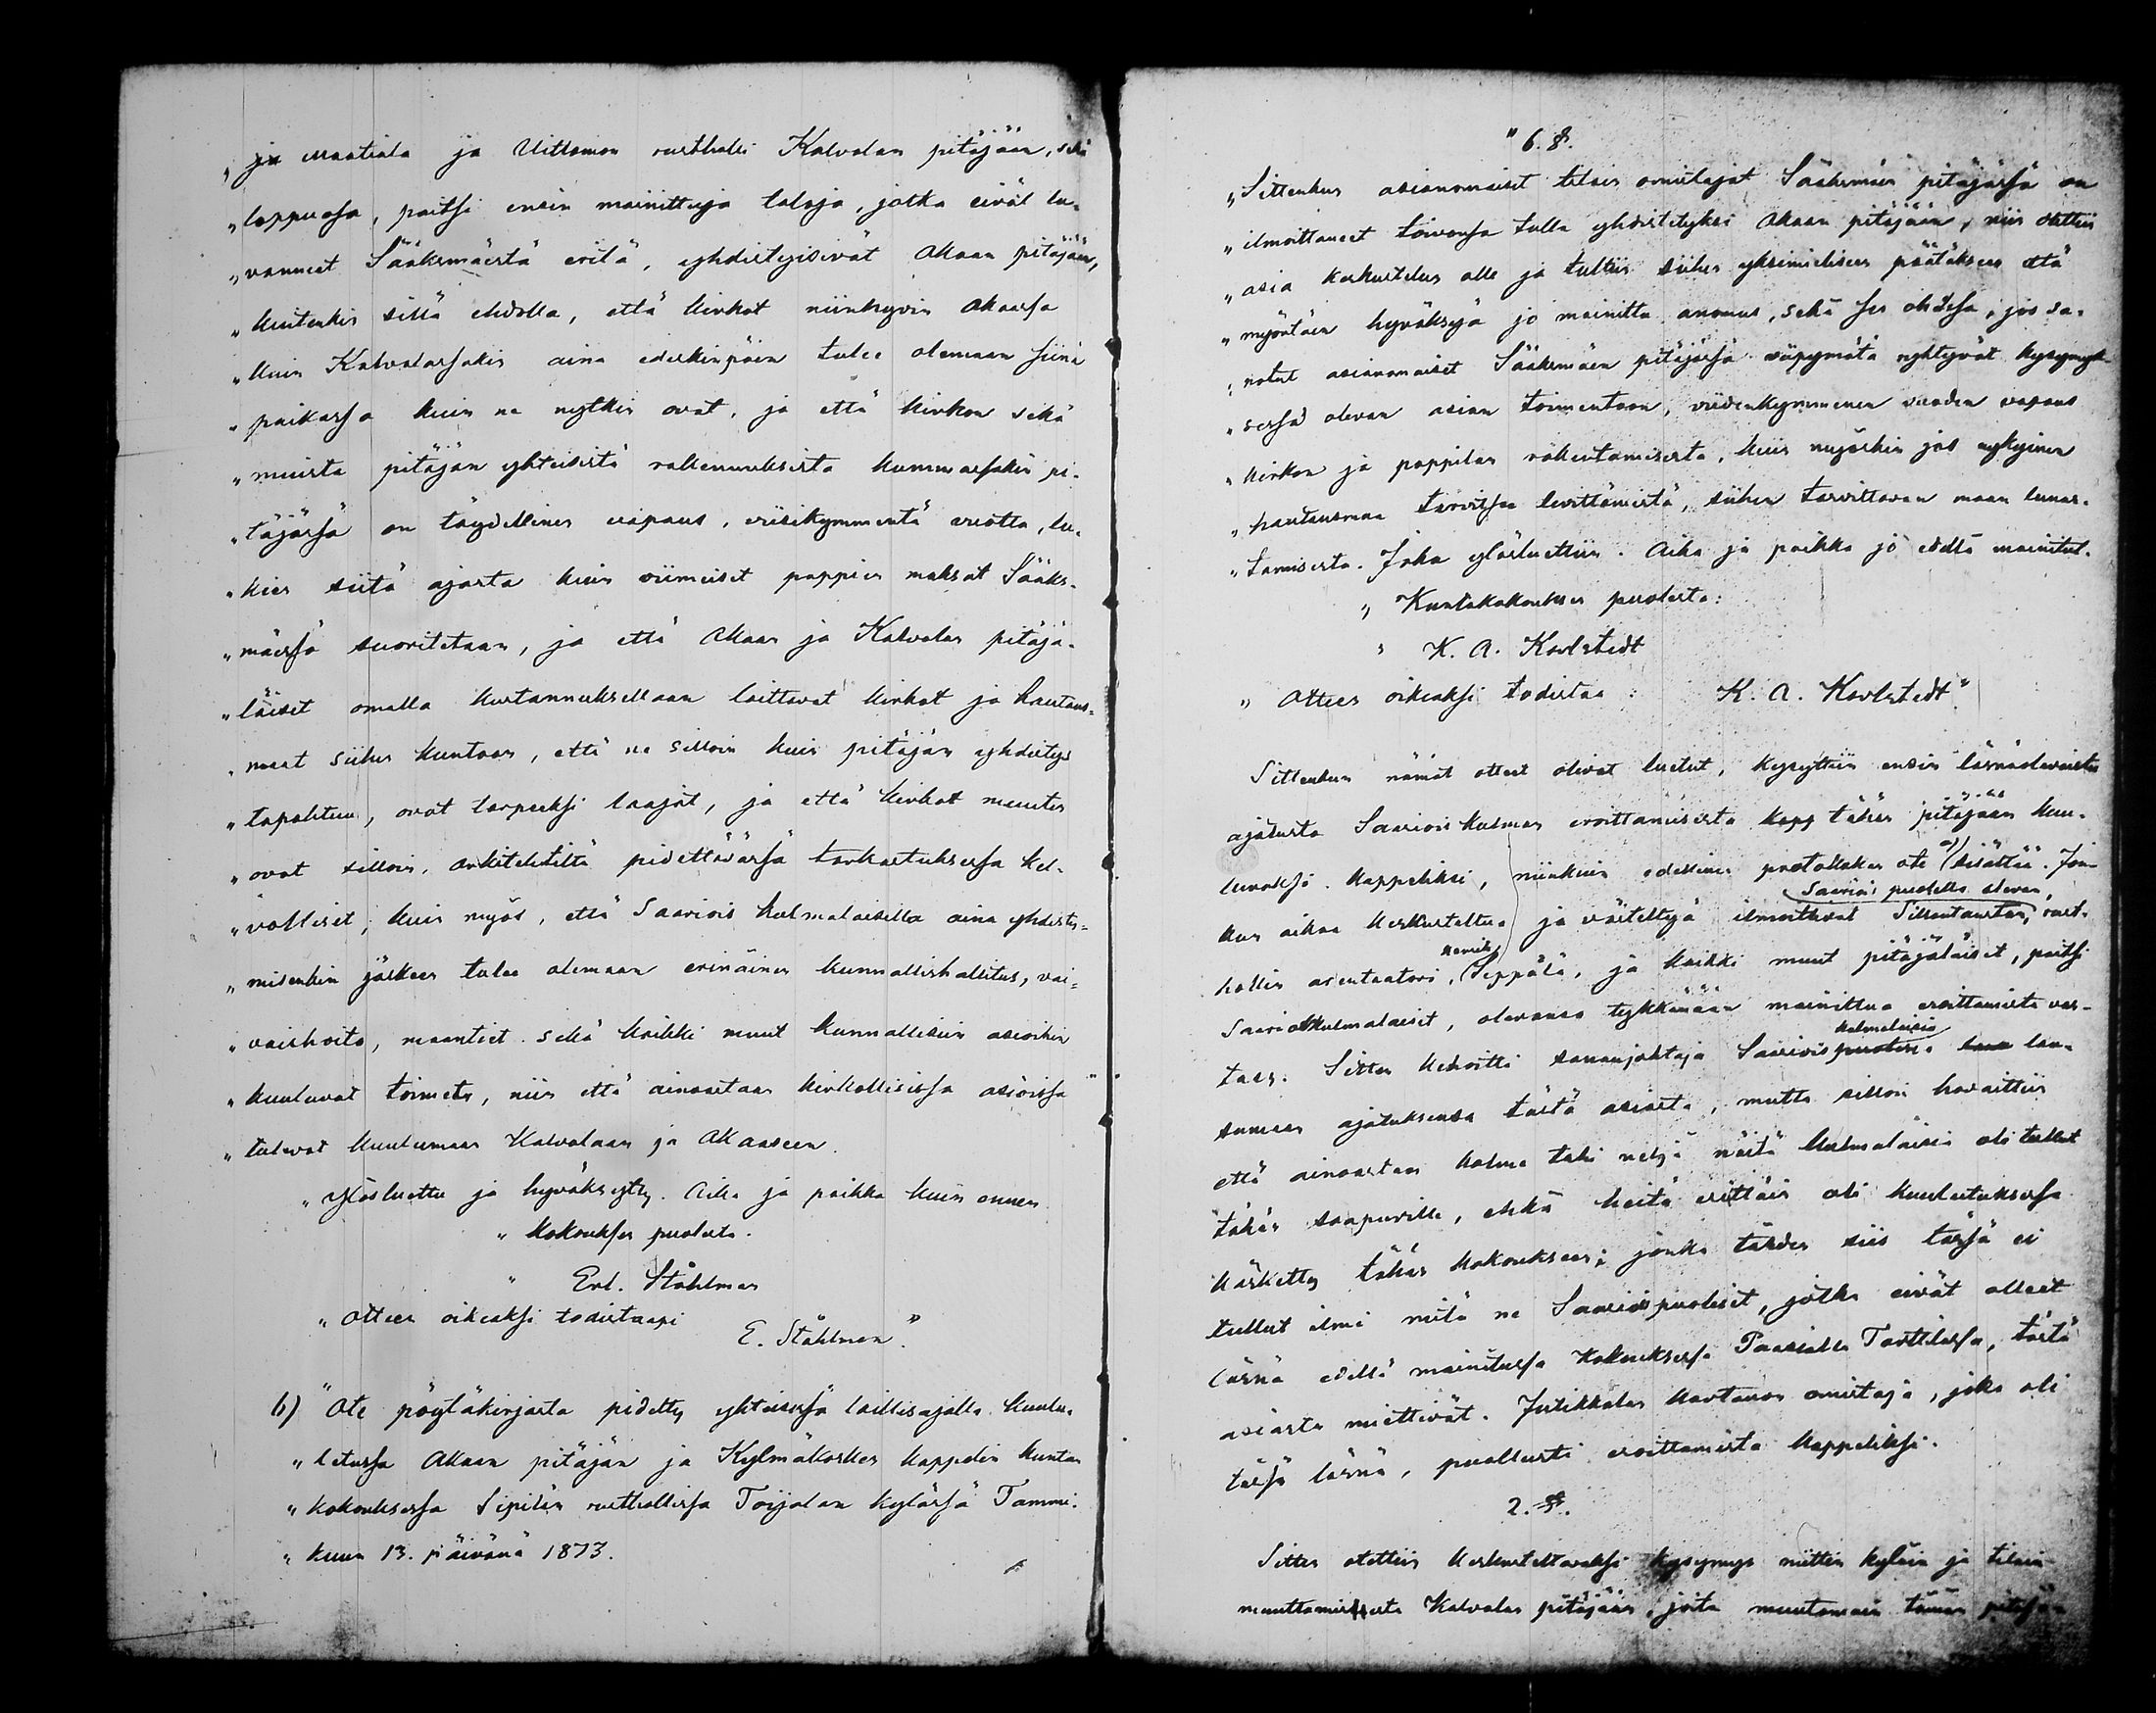 „ ja Maatiala ja Uittamon rusthalli Kalvolan pitäjään, sekä
„ loppuosa, paitsi ensin mainittuja taloja, jotka eivät lu-
„ vanneet Sääksmäestä eritä, yhdistyisivät Akaan pitäjään,
„ kuitenkin sillä ehdolla, että kirkot niinhyvin Akaassa
„ kuin Kalvolassakin aina edeskinpäin tulee olemaan siinä
„ paikassa kuin ne nytkin ovat, ja että kirkon sekä
„ muista pitäjän yhteisistä rakennuksista kummassakin pi-
„ täjässä on täydellinen vapaus, viisikymmentä vuotta, lu-
„ kien siitä ajasta kuin viimeiset pappien maksat Sääks-
„ mäessä suoritetaan, ja että Akaan ja Kalvolan pitäjä-
„ läiset omalla kustannuksellaan laittavat kirkot ja hautaus-
„ maat siihen kuntoon, että ne silloin kuin pitäjän yhdistys
„ tapahtuu, ovat tarpeeksi laajat, ja että kirkot muuten
„ ovat silloin, arkitehtiltä pidettävässä tarkastuksessa kel-
„ volliset, kuin myös, että Saariois kulmalaisilla aina yhdisty-
„ misenkin jälkeen tulee olemaan erinäinen kunnallishallitus, vai-
„ vaishoito, maantiet sekä kaikki muut kunnallisiin asioihin
„ kuuluvat toimet, niin että ainoastaan kirkollisissa asioissa
„ tulevat kuulumaan Kalvolaan ja Akaaseen.
„ Ylösluettu ja hyväksytty. Aika ja paikka kuin ennen
„ Kokouksen puolesta.
„ Erl. Ståhlman
„ Otteen oikeaksi todistaapi
E. Ståhlman"
b) "Ote pöytäkirjasta pidetty yhteisessä laillisajalla kuulu-
„ letussa Akaan pitäjän ja Kylmäkosken kappelin kuntan
„ kokouksessa Sipilän rusthallissa Toijalan kylässä Tammi-
„ kuun 13. päivänä 1873.
" 6. §.
„ Sittenkun asianomaiset tilain omistajat Sääksmäen pitäjässä on
„ ilmoittaneet toivonsa tulla yhdistetyksi Akaan pitäjään, niin otettiin
„ asia keskustelun alle ja tultiin siihen yksimieliseen päätökseen että
„ myöntäen hyväksyä jo mainittu anomus, sekä sen ohdessa, jos sa-
„ notut asianomaiset Sääksmäen pitäjässä viipymätä ryhtyvät kysymyk-
„ sessä olevan asian toimentoon, viidenkymmenen vuoden vapaus
„ kirkon ja pappilan rakentamisesta, kuin myöskin jos nykyinen
„ hautausmaa tarvitsee levittämistä, siihen tarvittavan maan lunas-
„ tamisesta. Joka ylösluettiin. Aika ja paikka jo edellä mainitut.
„ Kuntakokouksen puolesta:
„ K. A. Karlstedt
„ Otteen oikeaksi todistaa: K. A. Karlstedt"
Sittenkun nämät otteet olivat luetut, kysyttiin ensin läsnäolevaisten
ajatusta Saarioiskulman eroittamisesta kapp tähän pitäjään kuu-
luvaksi kappeliksi, niinkuin edellinen protokollan ote a) sisältää. Jon-
Saarioi puolella olevan,
kun aikaa keskusteltua ja väiteltyä ilmoittivat Sillantaustan, rust-
hollin arentaatori, Henrik Seppälä, ja kaikki muut pitäjäläiset, paitsi
Saarioiskulmalaiset, olevansa tykkänään mainittua eroittamista vas-
kulmalaisia
taan. Sitten kehoitti sananjohtaja Saariois puolisia lau-
sumaan ajatuksensa tästä asiasta, mutta silloin havaittiin
että ainoastaan kolme tahi neljä näitä kulmalaisia oli tullut
tähän saapuville, ehkä heitä erittäin oli kuulutuksessa
käsketty tähän kokoukseen; jonka tähden siis tässä ei
tullut ilmi mitä ne Saarioispuoliset, jotka eivät olleet
läsnä edellä mainitussa kokouksessa Paasialla Tarttilassa, tästä
asiasta miettivät. Jutikkalan kartanon omistaja, joka oli
tässä läsnä, puollusti eroittamista kappeliksi.
2. §.
Sitten otettiin keskusteltavaksi kysymys niitten kyläin ja tilain
muuttamisesta Kalvolan pitäjään, joita muutamain tämän pitäjän